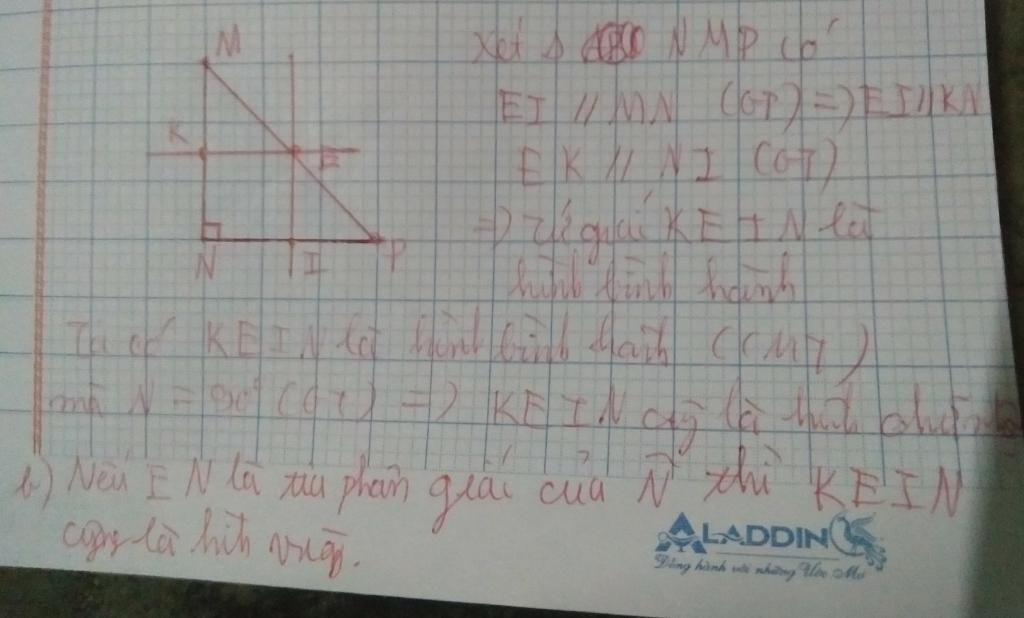 M
K
E
N
I
P
Xét Δ NMP có
EI // MN (GT) => EI // KN
EK // NI (GT)
=> tứ giác KEIN là
hình bình hành
Ta có KEIN là hình bình hành (CMT)
mà N = 90° (GT) => KEIN cũg là hình chữ
b) Nếu EN là tia phân giác của N̂ thì KEIN
cũg là hìh vuôg.
ALADDIN
Đồng hành với những Ước Mơ